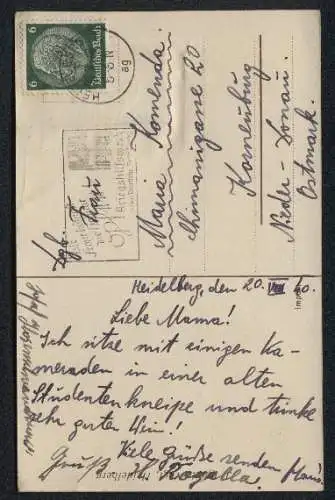 Deutsches Reich
6 6
Kriegshilfswerk
Frau
Maria Komenda
20
Korneuburg
Nieder-Donau.
Ostmark.
Heidelberg, den 20. VIII. 40.
Liebe Mama!
Ich sitze mit einigen Ka-
meraden in einer alten
Studentenkneipe und trinke
sehr guten Wein!
Viele Grüße senden
Gruß
Heidelberg